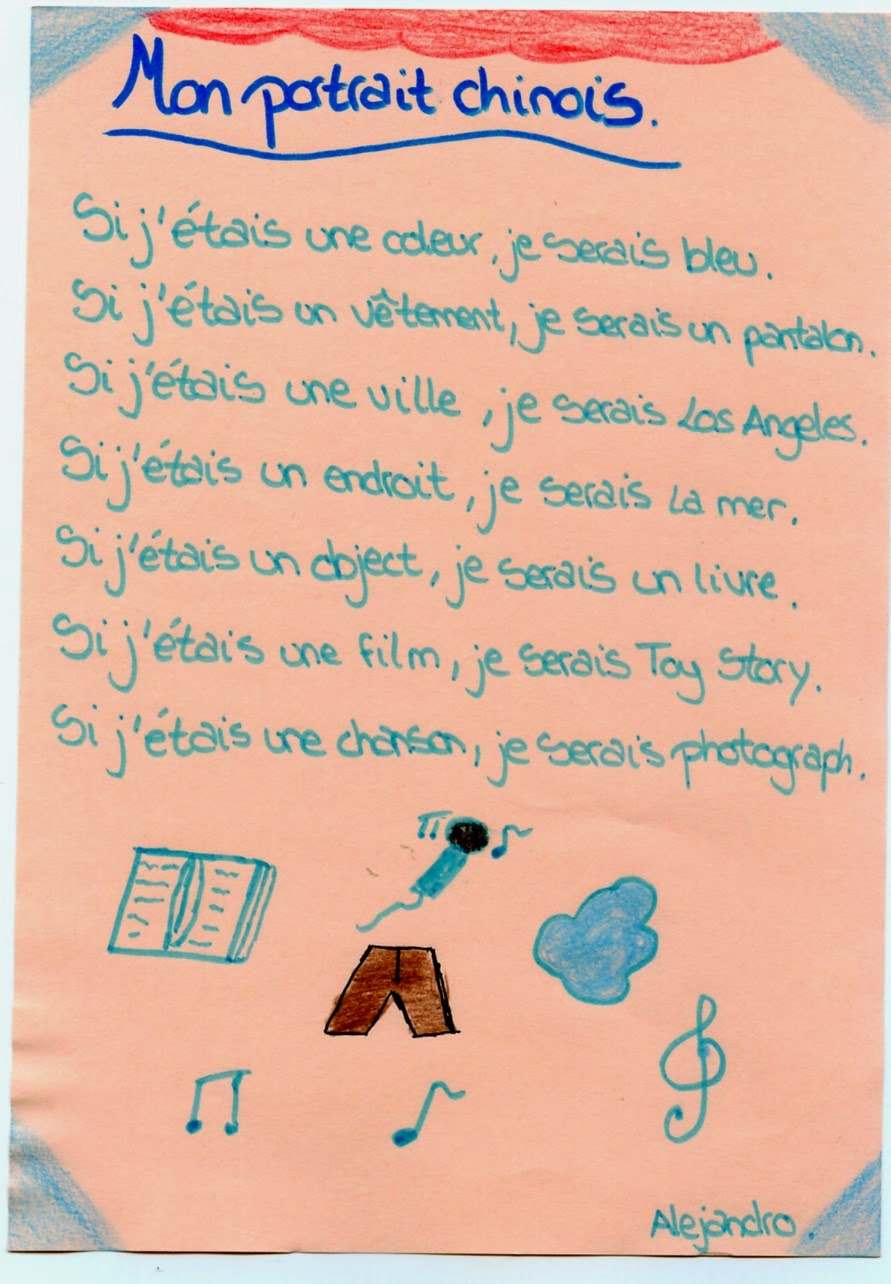 Mon portrait chinois.
Si j'étais une coleur, je serais bleu.
Si j'étais un vêtement, je serais un pantalon.
Si j'étais une ville, je serais Los Angeles.
Si j'étais un endroit, je serais la mer.
Si j'étais un object, je serais un livre.
Si j'étais une film, je serais Toy Story.
Si j'étais une chanson, je serais photograph.
Alejandro.